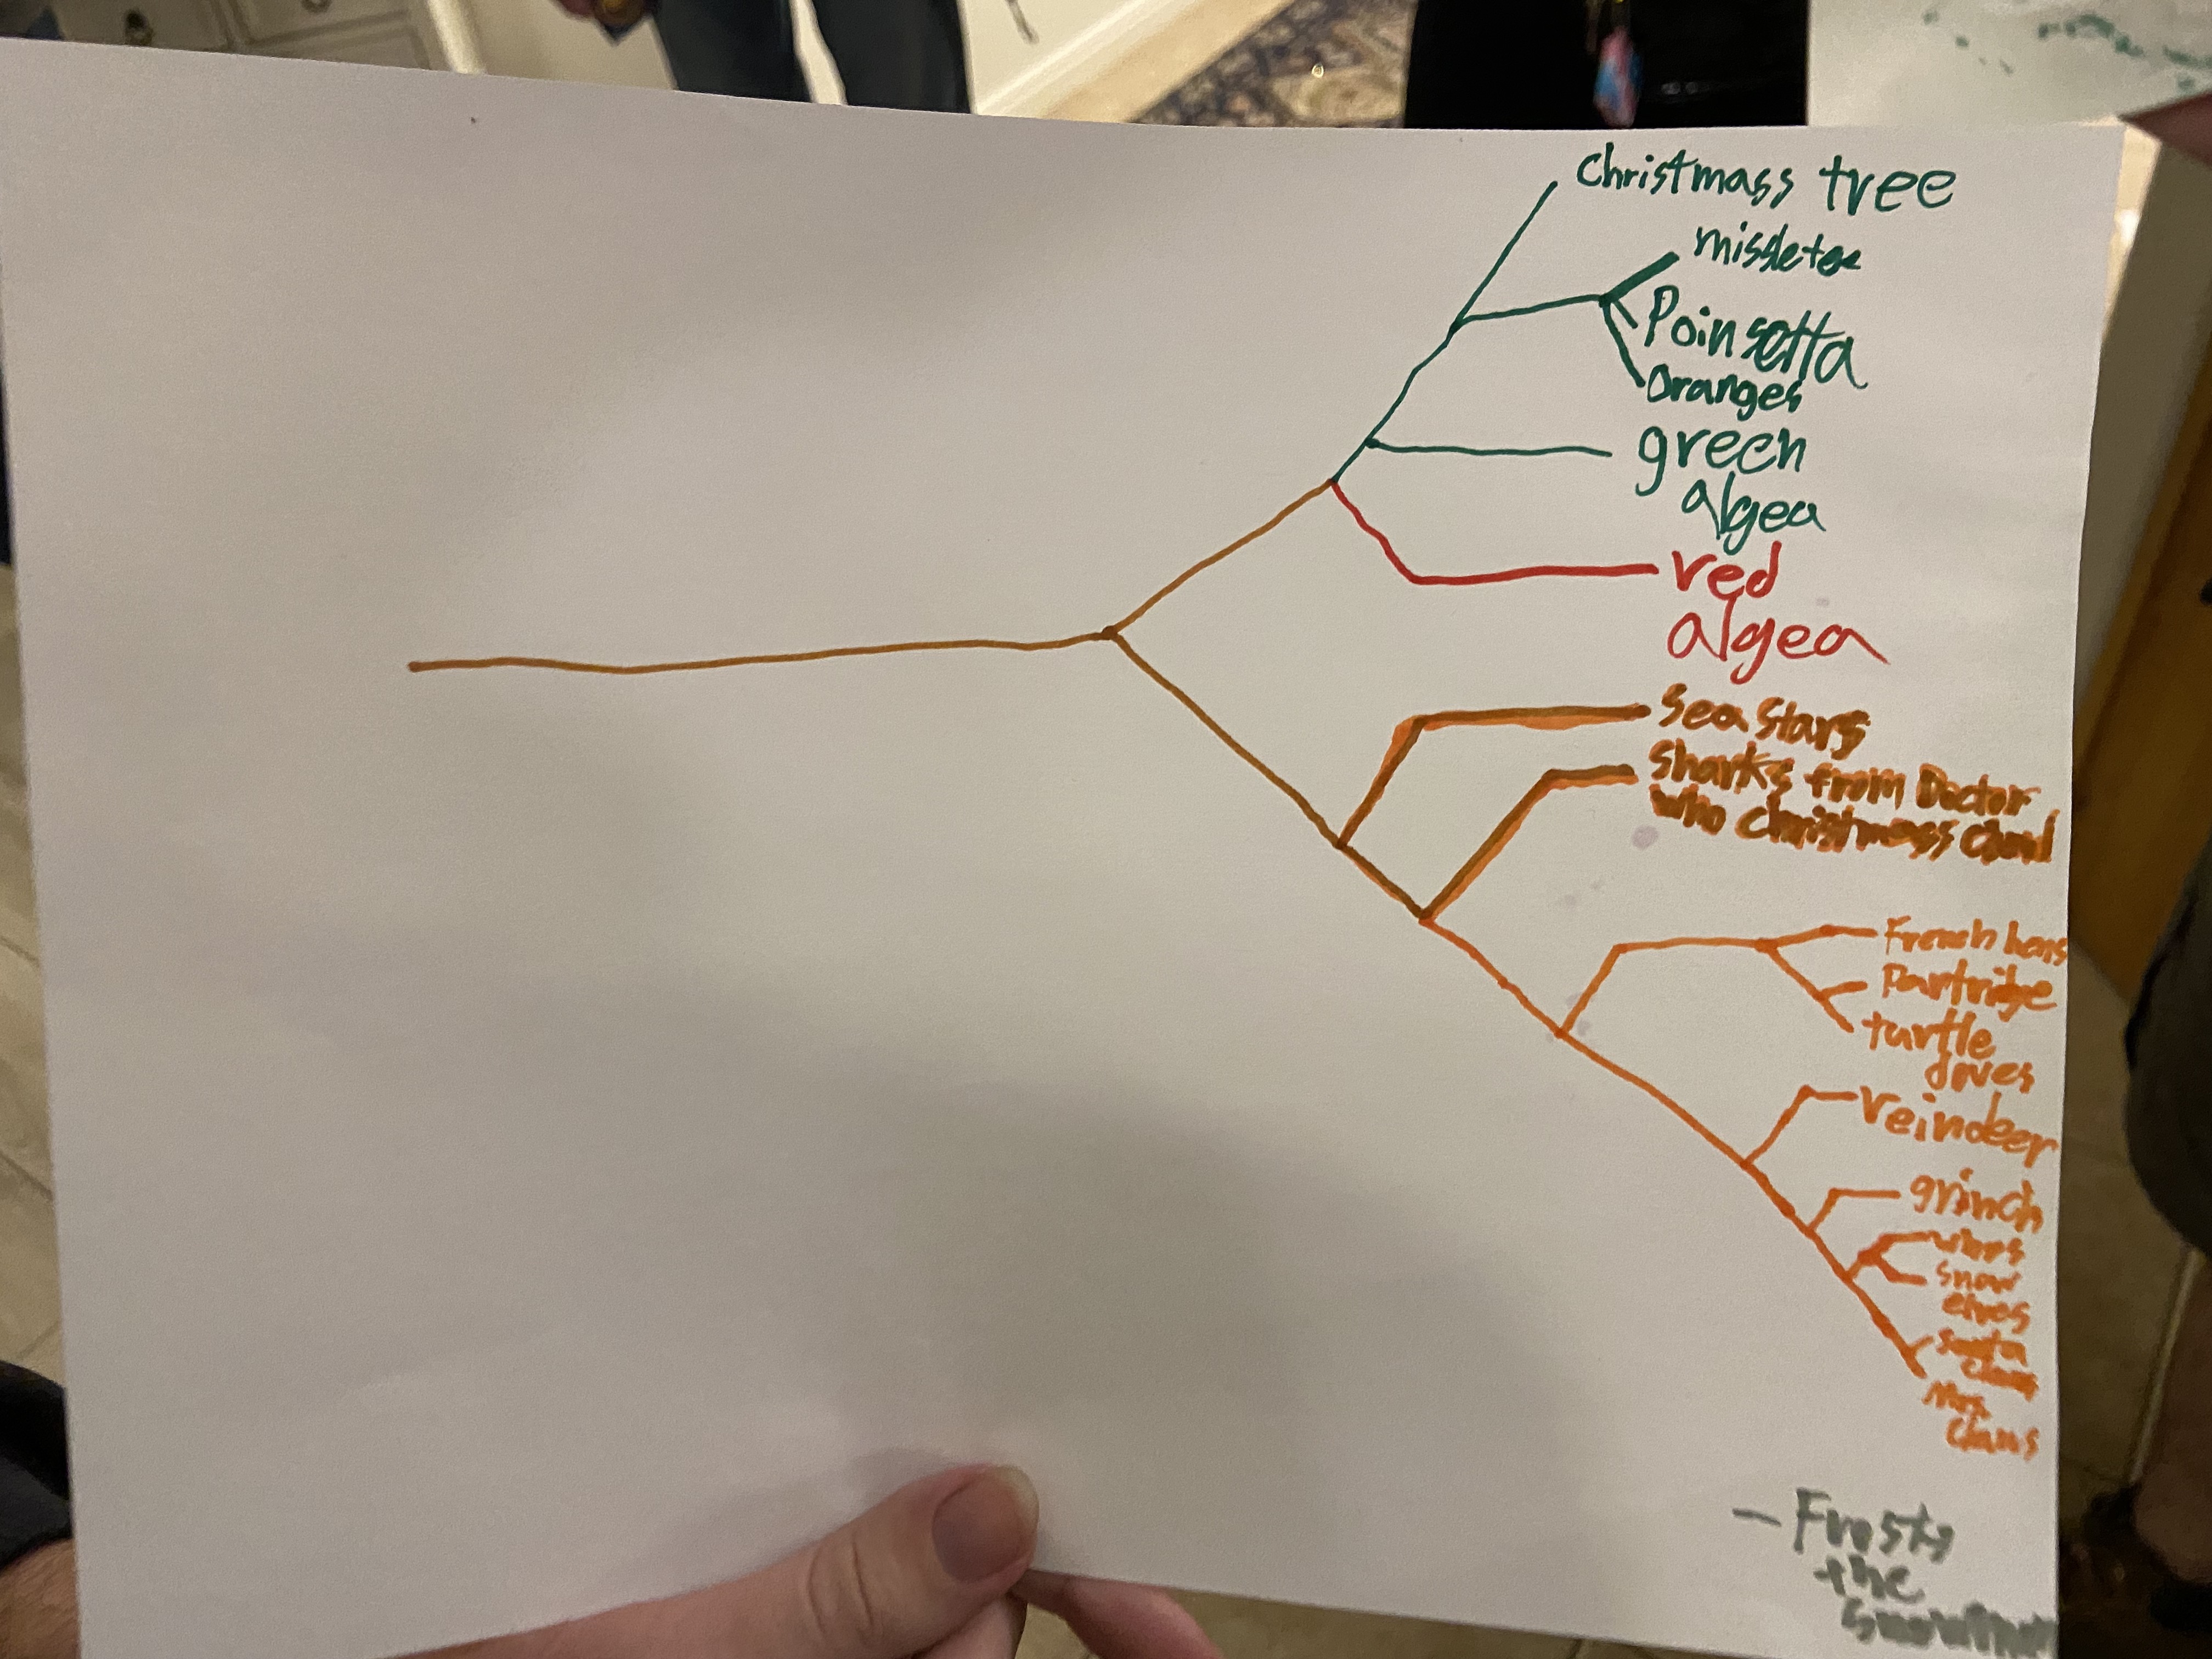 Christmass tree
missletoe
Poinsetta
oranges
green
algea
red
algea
Sea Stars
Sharks from Doctor
who christmass carol
French hens
Partridge
turtle
doves
reindeer
grinch
whos
snow
elves
Santa
claus
Mrs.
Claus
— Frosty
the
snowman